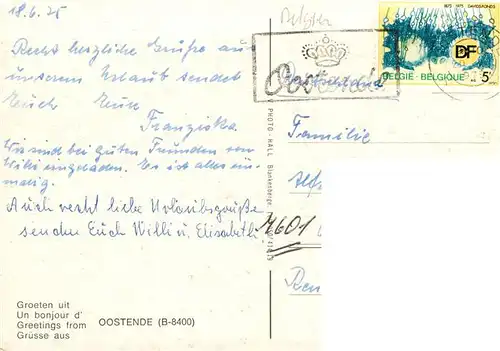 18.6.75
Recht herzliche Grüsse aus
unserem Urlaub sendet
Euch Eure
Franziska.
Wir sind bei guten Freunden von
Willi eingeladen. Es ist alles ein-
malig.
Auch recht liebe Urlaubsgrüße
senden Euch Willi u. Elisabeth.
Groeten uit
Un bonjour d'
Greetings from
Grüsse aus
OOSTENDE (B-8400)
PHOTO - HALL Blankenberge.
Belgien
1873 1973 DAVIDSFONDS
DF
BELGIE - BELGIQUE 5F
Oostende
Familie
4601